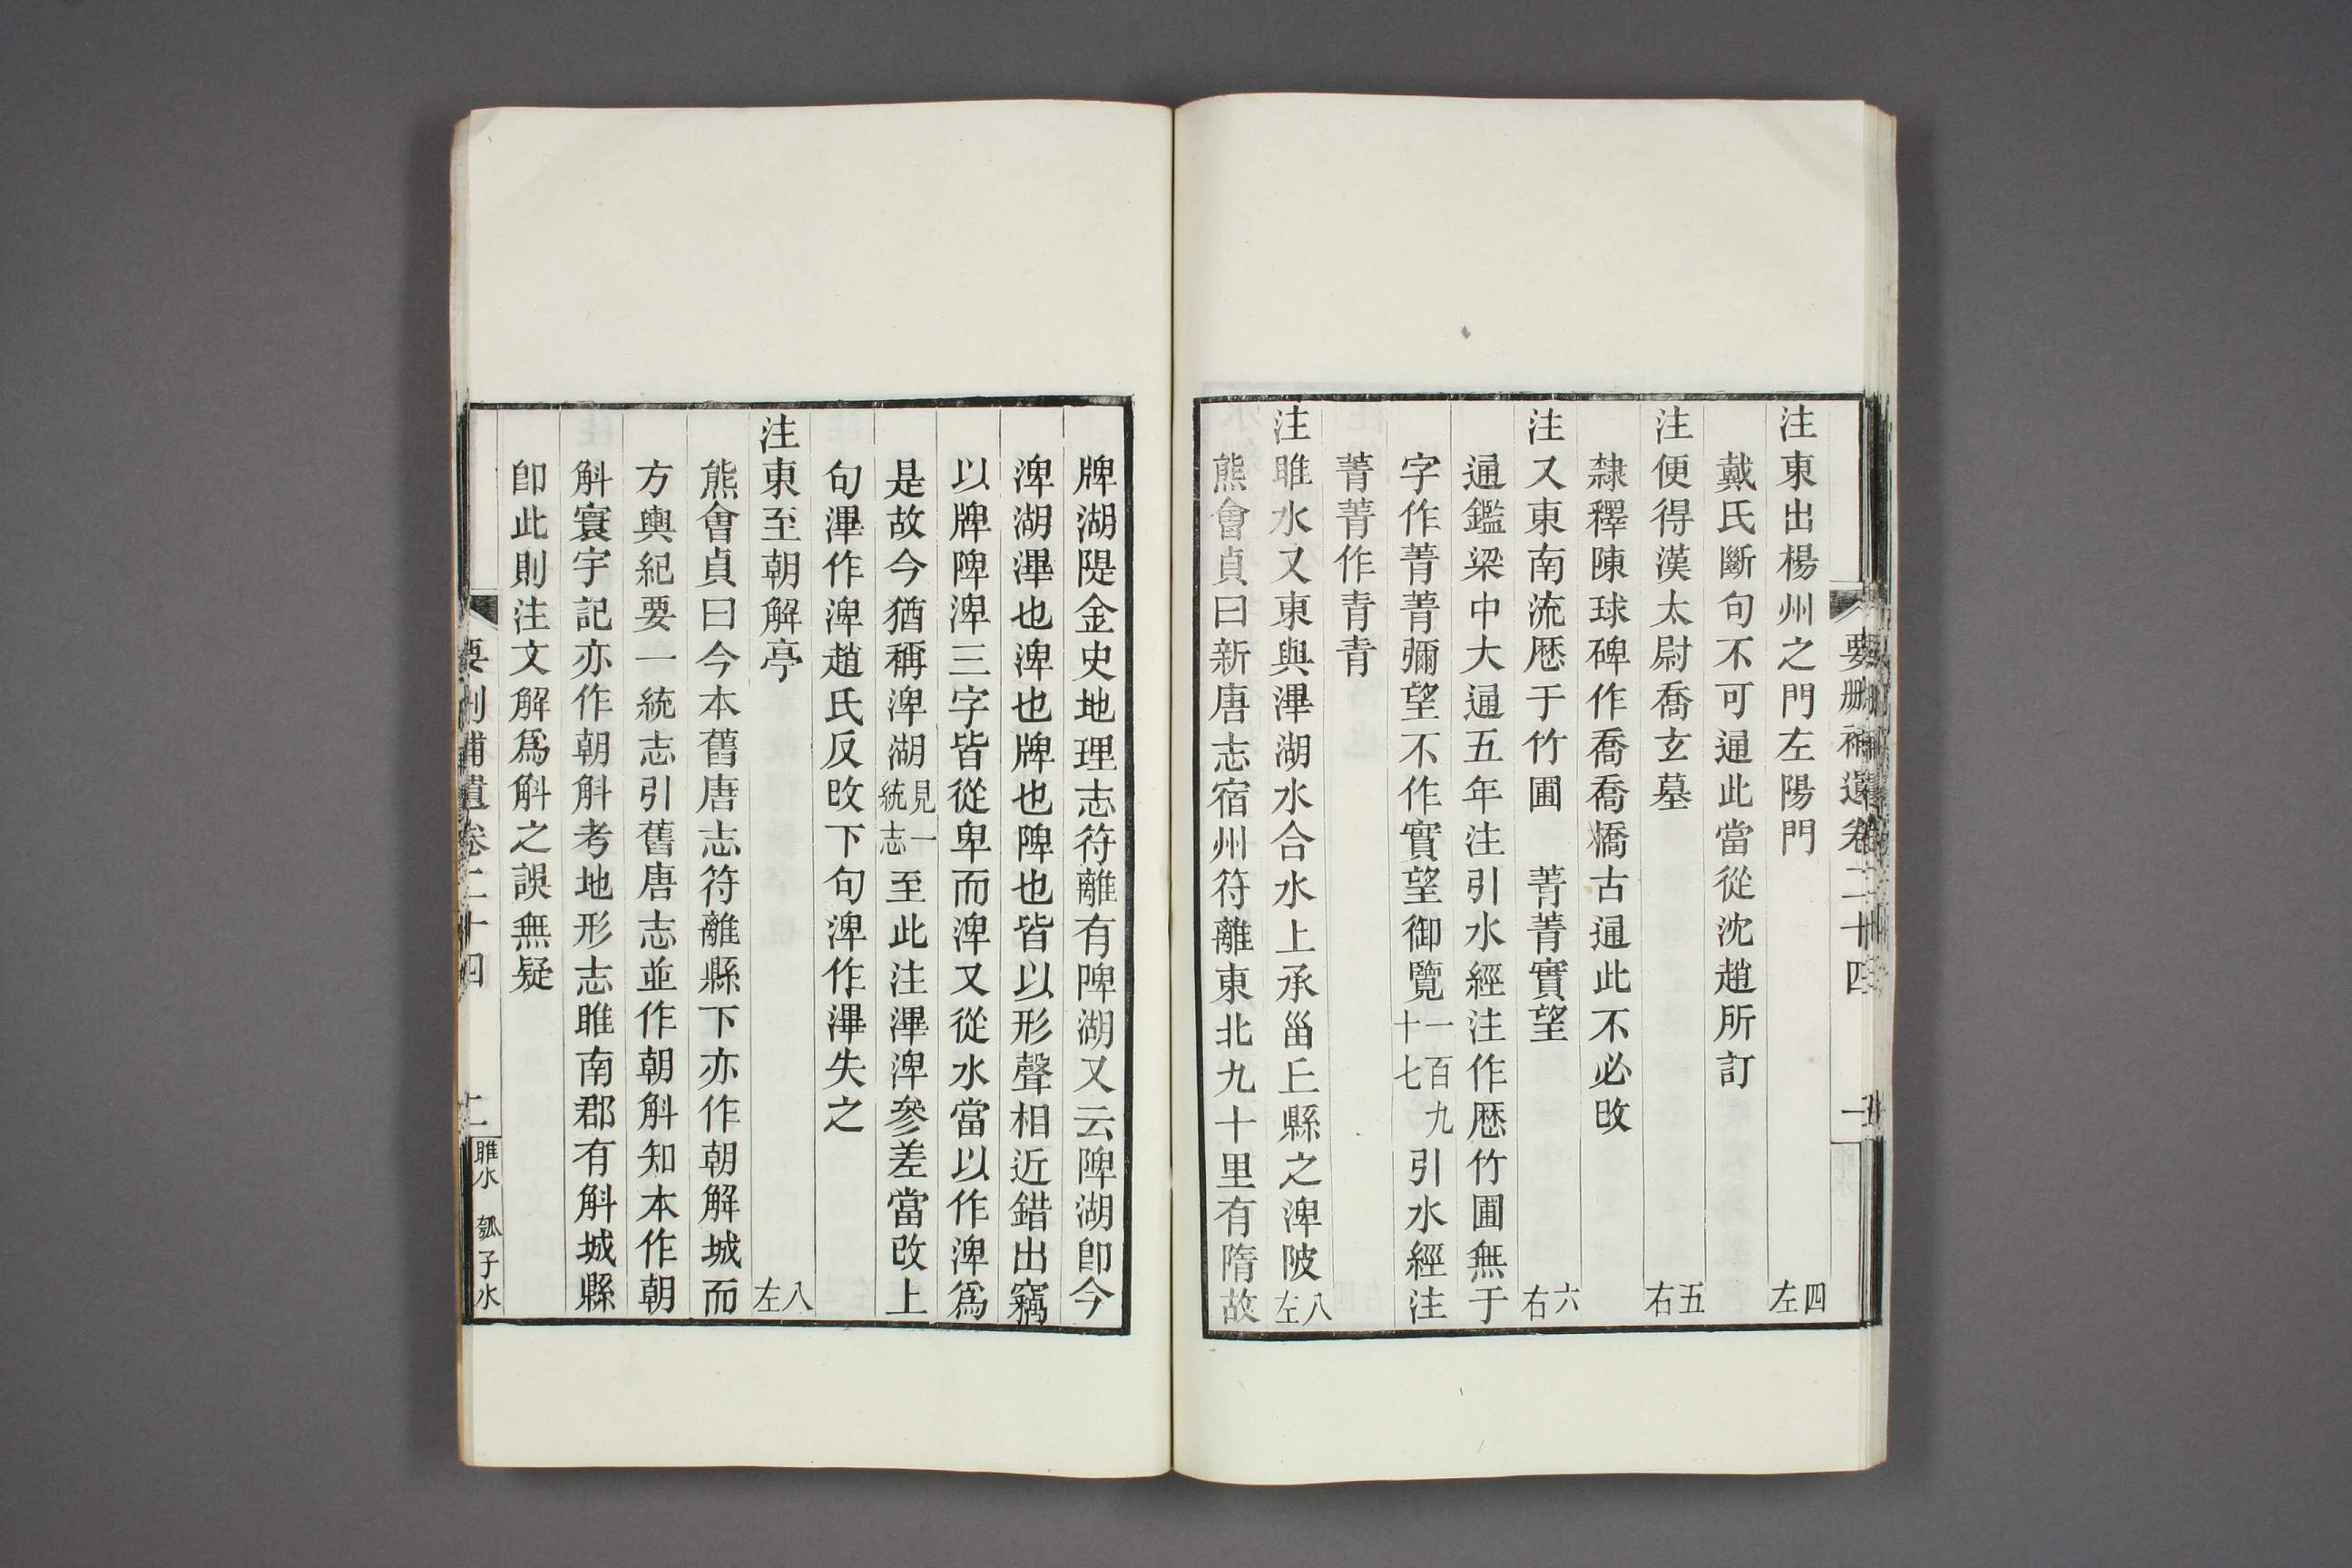 要刪補遺卷二十四
一
注東出楊州之門左陽門 四左
戴氏斷句不可通此當從沈趙所訂
注便得漢太尉喬玄墓 五右
隸釋陳球碑作喬喬橋古通此不必改
注又東南流歷于竹圃 菁菁實望 六右
通鑑梁中大通五年注引水經注作歷竹圃無于
字作菁菁彌望不作實望御覽一百九十七引水經注
菁菁作青青
注睢水又東與滭湖水合水上承甾丘縣之渒陂 八左
熊會貞曰新唐志宿州符離東北九十里有隋故
牌湖隄金史地理志符離有陴湖又云陴湖卽今
渒湖滭也渒也牌也陴也皆以形聲相近錯出竊
以牌陴渒三字皆從卑而渒又從水當以作渒爲
是故今猶稱渒湖見一統志至此注滭渒參差當改上
句滭作渒趙氏反改下句渒作滭失之
注東至朝解亭 八左
熊會貞曰今本舊唐志符離縣下亦作朝解城而
方輿紀要一統志引舊唐志並作朝斛知本作朝
斛寰宇記亦作朝斛考地形志睢南郡有斛城縣
卽此則注文解爲斛之誤無疑
要刪補遺卷二十四
二
睢水 瓠子水